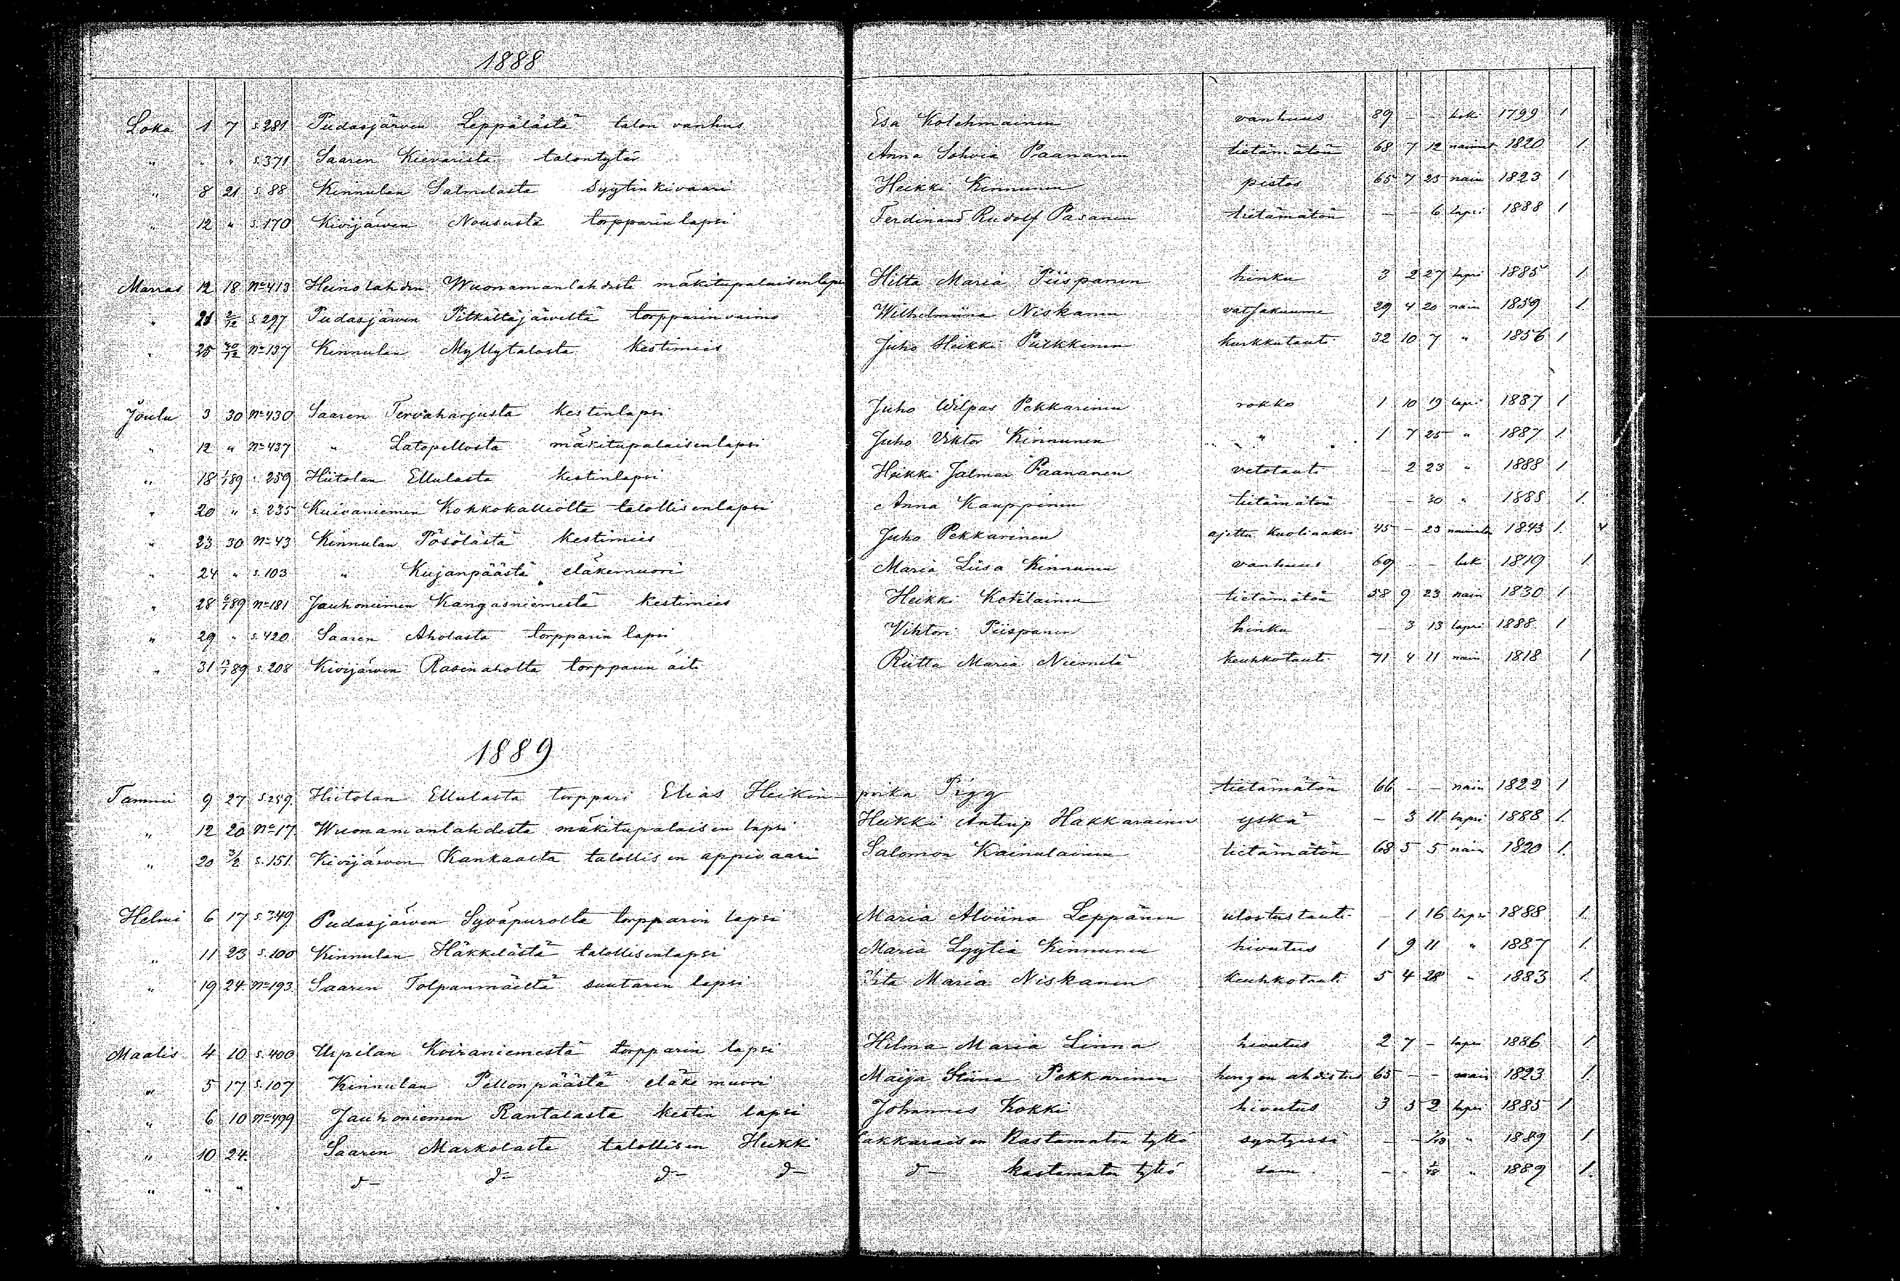 1888
Loka 1 7 s.281 Pudasjärven Leppälästä talon vanhus Esa Kolehmainen vanhuus 89 - - leski 1799 1
" " " s.371 Saaren Kievarista talontytär Anna Sohvia Paananen tietämätön 68 7 12 naimat 1820 1.
" 8 21 s.88 Kinnulan Salmelasta syytinkivaari Heikki Kinnunen pistos 65 7 25 nain 1823 1
" 12 " s.170 Kivijärven Noususta torpparinlapsi Ferdinand Rudolf Pasanen tietämätön - - 6 lapsi 1888 1
Marras 12 18 No 413 Heinolahden Wuonamanlahdesta mäkitupalaisenlapsi Hilta Maria Piispanen hinku 3 2 27 lapsi 1885 1.
" 21 2/12 s.297 Pudasjärven Pitkältäjärveltä torpparinvaimo Wilhelmiina Niskanen vatsakuume 29 4 20 nain 1859 1.
" 25 20/12 No 137 Kinnulan Myllytalosta kestimies Juho Heikki Pulkkinen kurkkutauti 32 10 7 " 1856 1
Joulu 3 30 No 430 Saaren Tervaharjusta kestinlapsi Juho Wilpas Pekkarinen rokko 1 10 19 lapsi 1887 1
" 12 " No 437 " Latopellosta mäkitupalaisenlapsi Juho Viktor Kinnunen " 1 7 25 " 1887 1.
" 18 1/89 s.259 Hiitolan Ellulasta kestinlapsi Heikki Jalmar Paananen vetotauti - 2 23 " 1888 1
" 20 " s.235 Kuivaniemen Kokkokalliolta talollisenlapsi Anna Kauppinen tietämätön - - 30 " 1888 1.
" 23 30 No 43 Kinnulan Pösölästä kestimies Juho Pekkarinen ajettu kuoliaaksi 45 - 23 naimaton 1843 1.
" 24 " s.103 " Kujanpäästä eläkemuori Maria Liisa Kinnunen vanhuus 69 - - lesk 1819 1
" 28 6/189 No 181 Jauhoniemen Kangasniemestä kestimies Heikki Kotilainen tietämätön 58 9 23 nain 1830 1.
" 29 " s.420 Saaren Aholasta torpparin lapsi Vihtori Piispanen hinku - 3 13 lapsi 1888 1
" 31 s.208 Kivijärven Rasinaholta torpparin äiti Riitta Maria Niemelä keuhkotauti 71 4 11 nain 1818 1
1889
Tammi 9 27 s.259 Hiitolan Ellulasta torppari Elias Heikin- poika Pigg tietämätön 66 - - nain 1822 1
" 12 20 No 17 Wuonamanlahdesta mäkitupalaisen lapsi Heikki Anterp Hakkarainen yskä - 3 11 lapsi 1888 1.
" 20 3/2 s.151 Kivijärven Kankaalta talollisen appivaari Salomon Kainulainen tietämätön 68 5 5 nain 1820 1.
Helmi 6 17 s.349 Pudasjärven Syväpurolta torpparin lapsi Maria Alviina Leppänen ulostustauti - 1 16 lapsi 1888 1.
" 11 23 s.100 Kinnulan Häkkilästä talollisenlapsi Maria Lyytia Kinnunen hivutus 1 9 11 " 1887 1.
" 19 24 No 193 Saaren Tolpanmäeltä suutarin lapsi Iita Maria Niskanen keuhkotauti 5 4 28 " 1883 1.
Maalis 4 10 s.400 Urpilan Koiraniemestä torpparin lapsi Hilma Maria Linna hivutus 2 7 - lapsi 1886 1
" 5 17 s.107 Kinnulan Pellonpäästä eläke muori Maija Stiina Pekkarinen hengen ahdistus 65 - - nain 1823 1.
" 6 10 No 499 Jauhoniemen Rantalasta kestin lapsi Johannes Kokki hivutus 3 5 2 lapsi 1885 1
" 10 24. Saaren Markolasta talollisen Heikki Hakkaraisen kastamaton tyttö syntyissä - - " 1889 1
" " " d- d- d- d- d- kastamaton tyttö sam. - - " 1889 1.